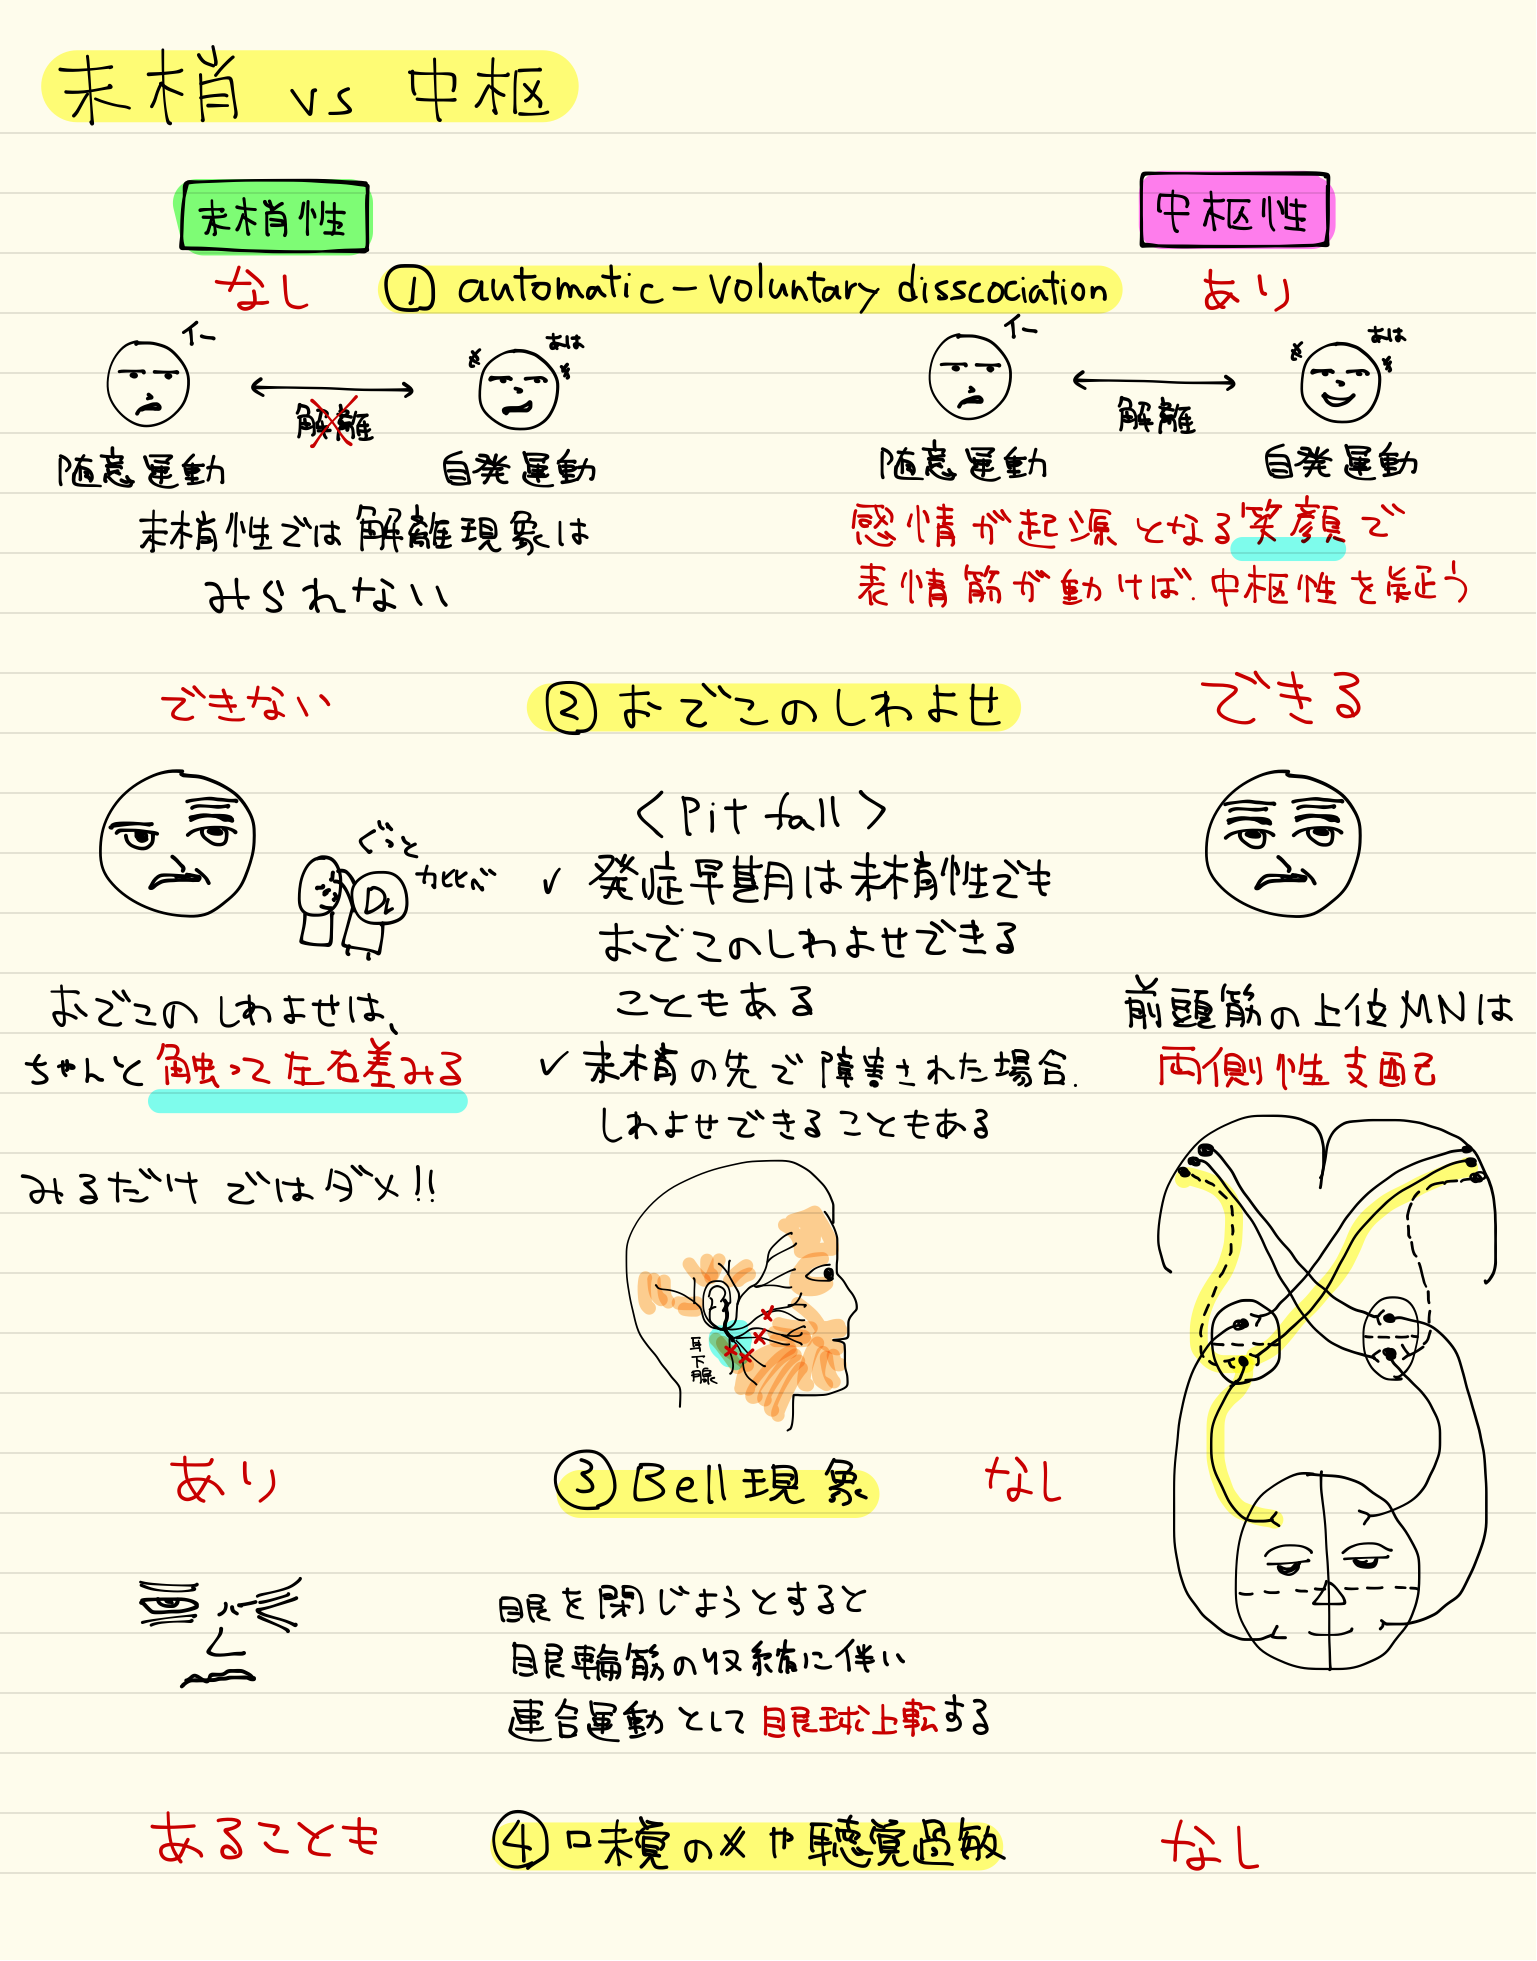 末梢 vs 中枢
末梢性
中枢性
なし
① automatic-voluntary disscociation
あり
イー
あは
イー
あは
解離
解離
随意運動
自発運動
随意運動
自発運動
末梢性では解離現象は
みられない
感情が起源となる笑顔で
表情筋が動けば、中枢性を疑う
できない
② おでこのしわよせ
できる
<Pit fall>
ぐっと
カベ
Dr
✓ 発症早期は末梢性でも
おでこのしわよせできる
こともある
✓ 末梢の先で障害された場合、
しわよせできることもある
おでこのしわよせは、
ちゃんと触って左右差みる
みるだけではダメ!!
前頭筋の上位MNは
両側性支配
耳下腺
あり
③ Bell現象
なし
眼を閉じようとすると
眼輪筋の収縮に伴い
連合運動として眼球上転する
あることも
④ 味覚の×や聴覚過敏
なし